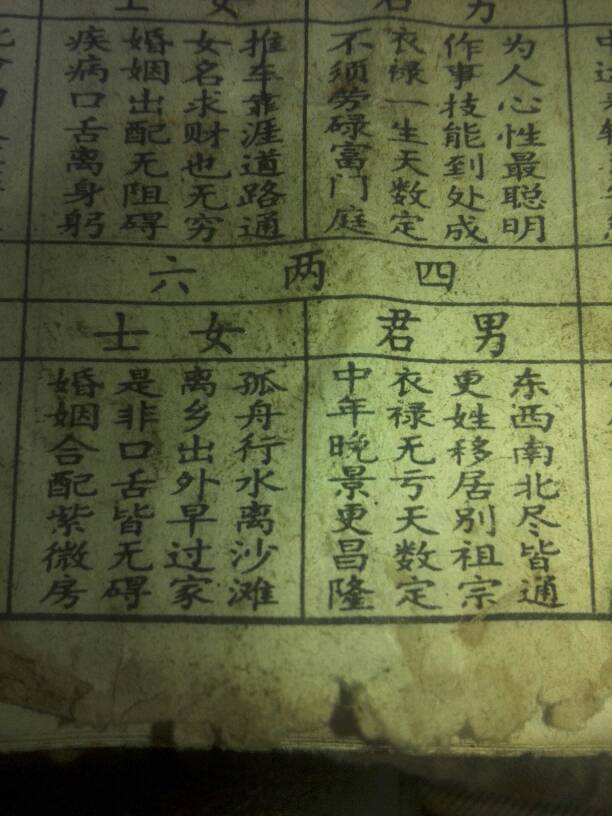 男
为人心性最聪明
作事技能到处成
衣禄一生天数定
不须劳碌富门庭
女
士
推车靠涯道路通
女名求财也无穷
婚姻出配无阻碍
疾病口舌离身躬
四两六
男君
东西南北尽皆通
更姓移居别祖宗
衣禄无亏天数定
中年晚景更昌隆
女士
孤舟行水离沙滩
离乡出外早过家
是非口舌皆无碍
婚姻合配紫微房